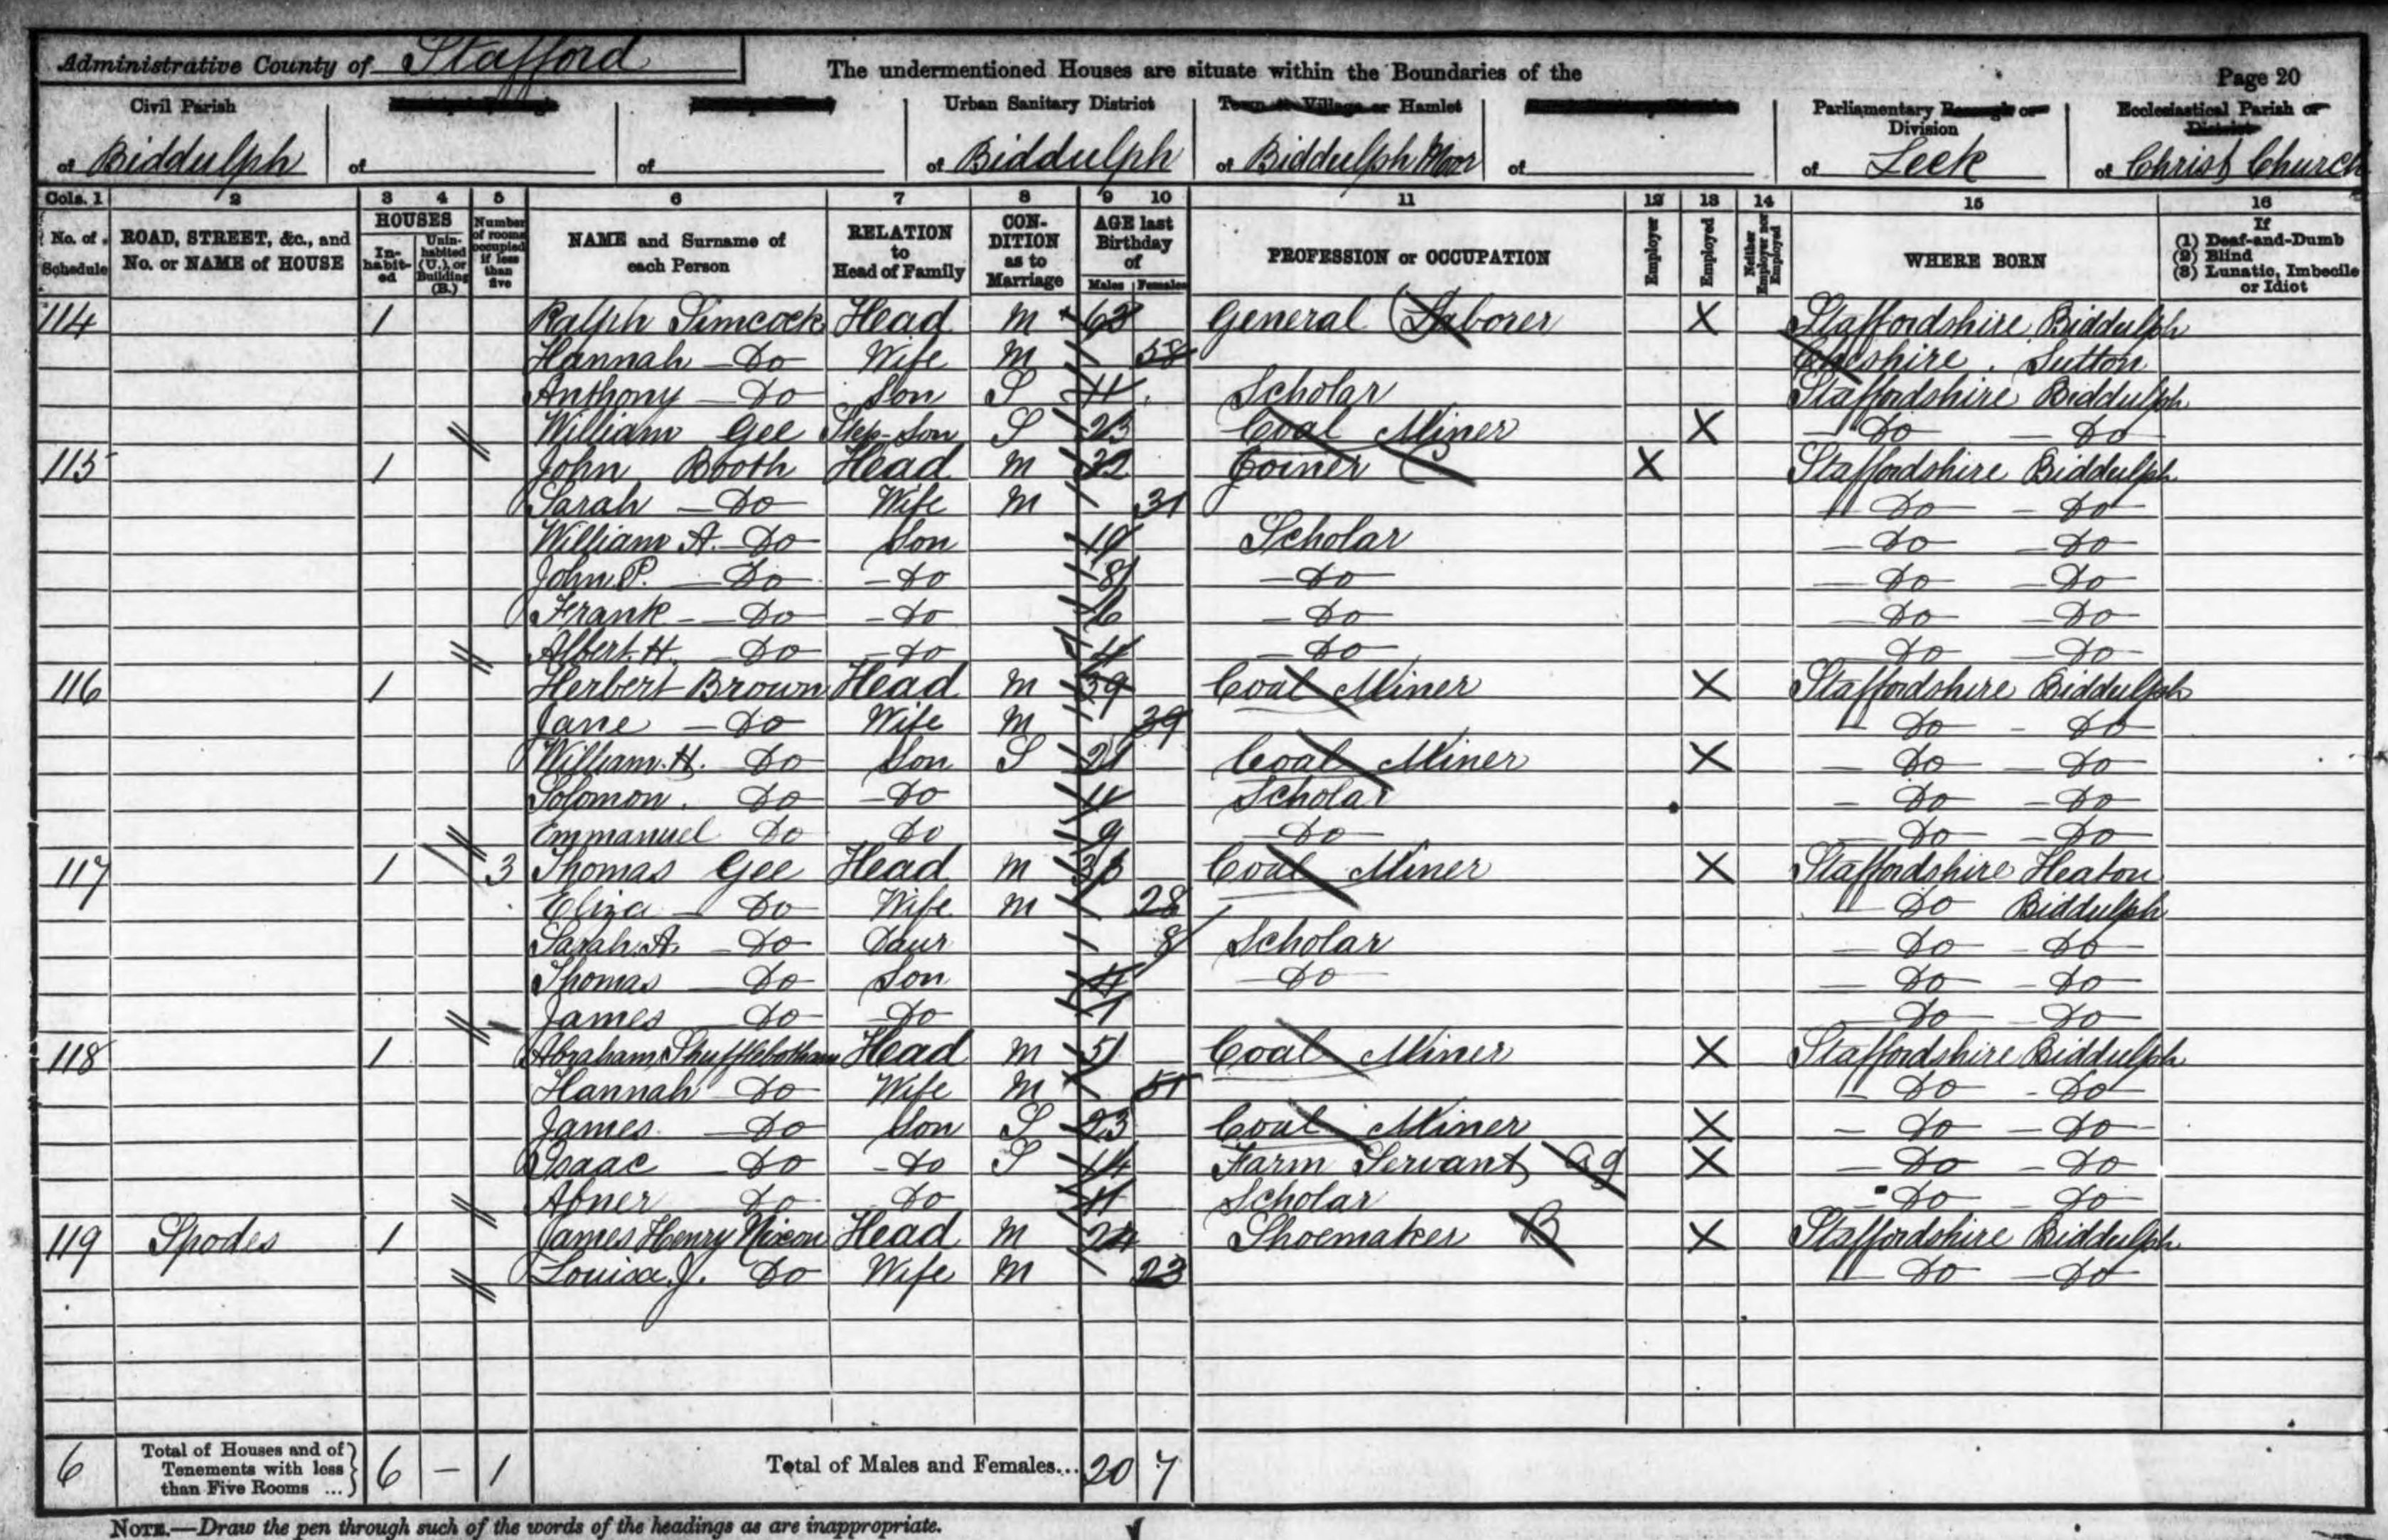 Administrative County of Stafford
The undermentioned Houses are situate within the Boundaries of the
Page 20
Civil Parish of Biddulph
of
of
Urban Sanitary District of Biddulph
Town or Village or Hamlet of Biddulph Moor
of
Parliamentary Borough or Division of Leek
Ecclesiastical Parish or District of Christ Church
Cols. 1 2 3 4 5 6 7 8 9 10 11 12 13 14 15 16
No. of Schedule
ROAD, STREET, &c., and No. or NAME of HOUSE
HOUSES
In-habit-ed
Unin-habited (U.), or Building (B.)
Number of rooms occupied if less than five
NAME and Surname of each Person
RELATION to Head of Family
CON-DITION as to Marriage
AGE last Birthday of
Males Females
PROFESSION or OCCUPATION
Employer
Employed
Neither Employer nor Employed
WHERE BORN
If
(1) Deaf-and-Dumb
(2) Blind
(3) Lunatic, Imbecile or Idiot
114 1 Ralph Simcock Head M 63 General Laborer X Staffordshire Biddulph
Hannah Do Wife M 58 Cheshire Sutton
Anthony Do Son S 11 Scholar Staffordshire Biddulph
William Gee Step-Son S 23 Coal Miner X Do Do
115 1 John Booth Head M 32 Joiner X Staffordshire Biddulph
Sarah Do Wife M 31 Do Do
William A. Do Son 10 Scholar Do Do
John P. Do Do 8 Do Do Do
Frank Do Do 6 Do Do Do
Albert H. Do Do 4 Do Do Do
116 1 Herbert Brown Head M 39 Coal Miner X Staffordshire Biddulph
Jane Do Wife M 39 Do Do
William H. Do Son S 21 Coal Miner X Do Do
Solomon Do Do 11 Scholar Do Do
Emmanuel Do Do 9 Do Do Do
117 1 3 Thomas Gee Head M Coal Miner X Staffordshire Heaton
Eliza Do Wife M 28 Do Biddulph
Sarah A. Do Daur 8 Scholar Do Do
Thomas Do Son 4 Do Do Do
James Do Do 1 Do Do
118 1 Abraham Shufflebotham Head M 51 Coal Miner X Staffordshire Biddulph
Hannah Do Wife M 51 Do Do
James Do Son S 23 Coal Miner X Do Do
Isaac Do Do S 14 Farm Servant Ag X Do Do
Abner Do Do 11 Scholar Do Do
119 Spodes 1 James Henry Nixon Head M 24 Shoemaker B X Staffordshire Biddulph
Louisa J. Do Wife M 23 Do Do
6 Total of Houses and of Tenements with less than Five Rooms ... 6 – 1 Total of Males and Females... 20 7
NOTE.—Draw the pen through such of the words of the headings as are inappropriate.